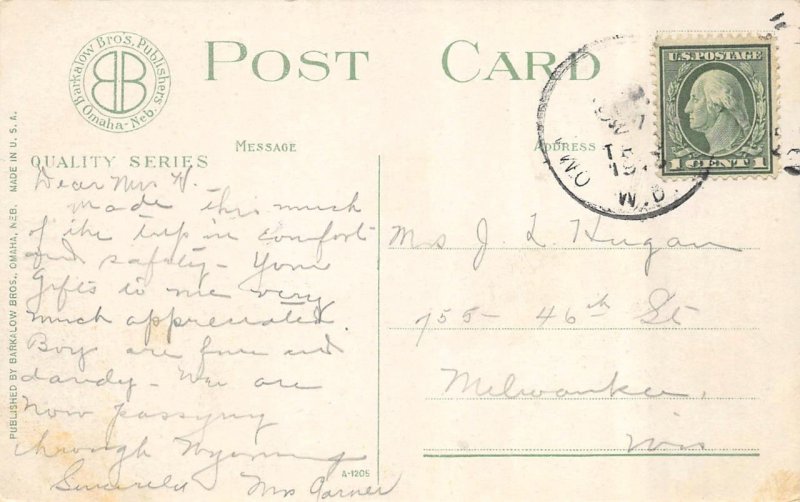 Barkalow Bros. Publishers
Omaha-Neb.
POST CARD
U.S. POSTAGE
1 CENT 1
MESSAGE
ADDRESS
QUALITY SERIES
W.D.
Dear Mrs H.
made this much
of the trip in comfort
and safety - Your
Gifts to me very
much appreciated.
Boys are fine and
dandy - We are
now passing
through Wyoming
Sincerely Mrs Garner
Mrs J. L. Hugan
755 - 46th St
Milwaukee,
Wis
A-1205
PUBLISHED BY BARKALOW BROS., OMAHA, NEB. MADE IN U.S.A.